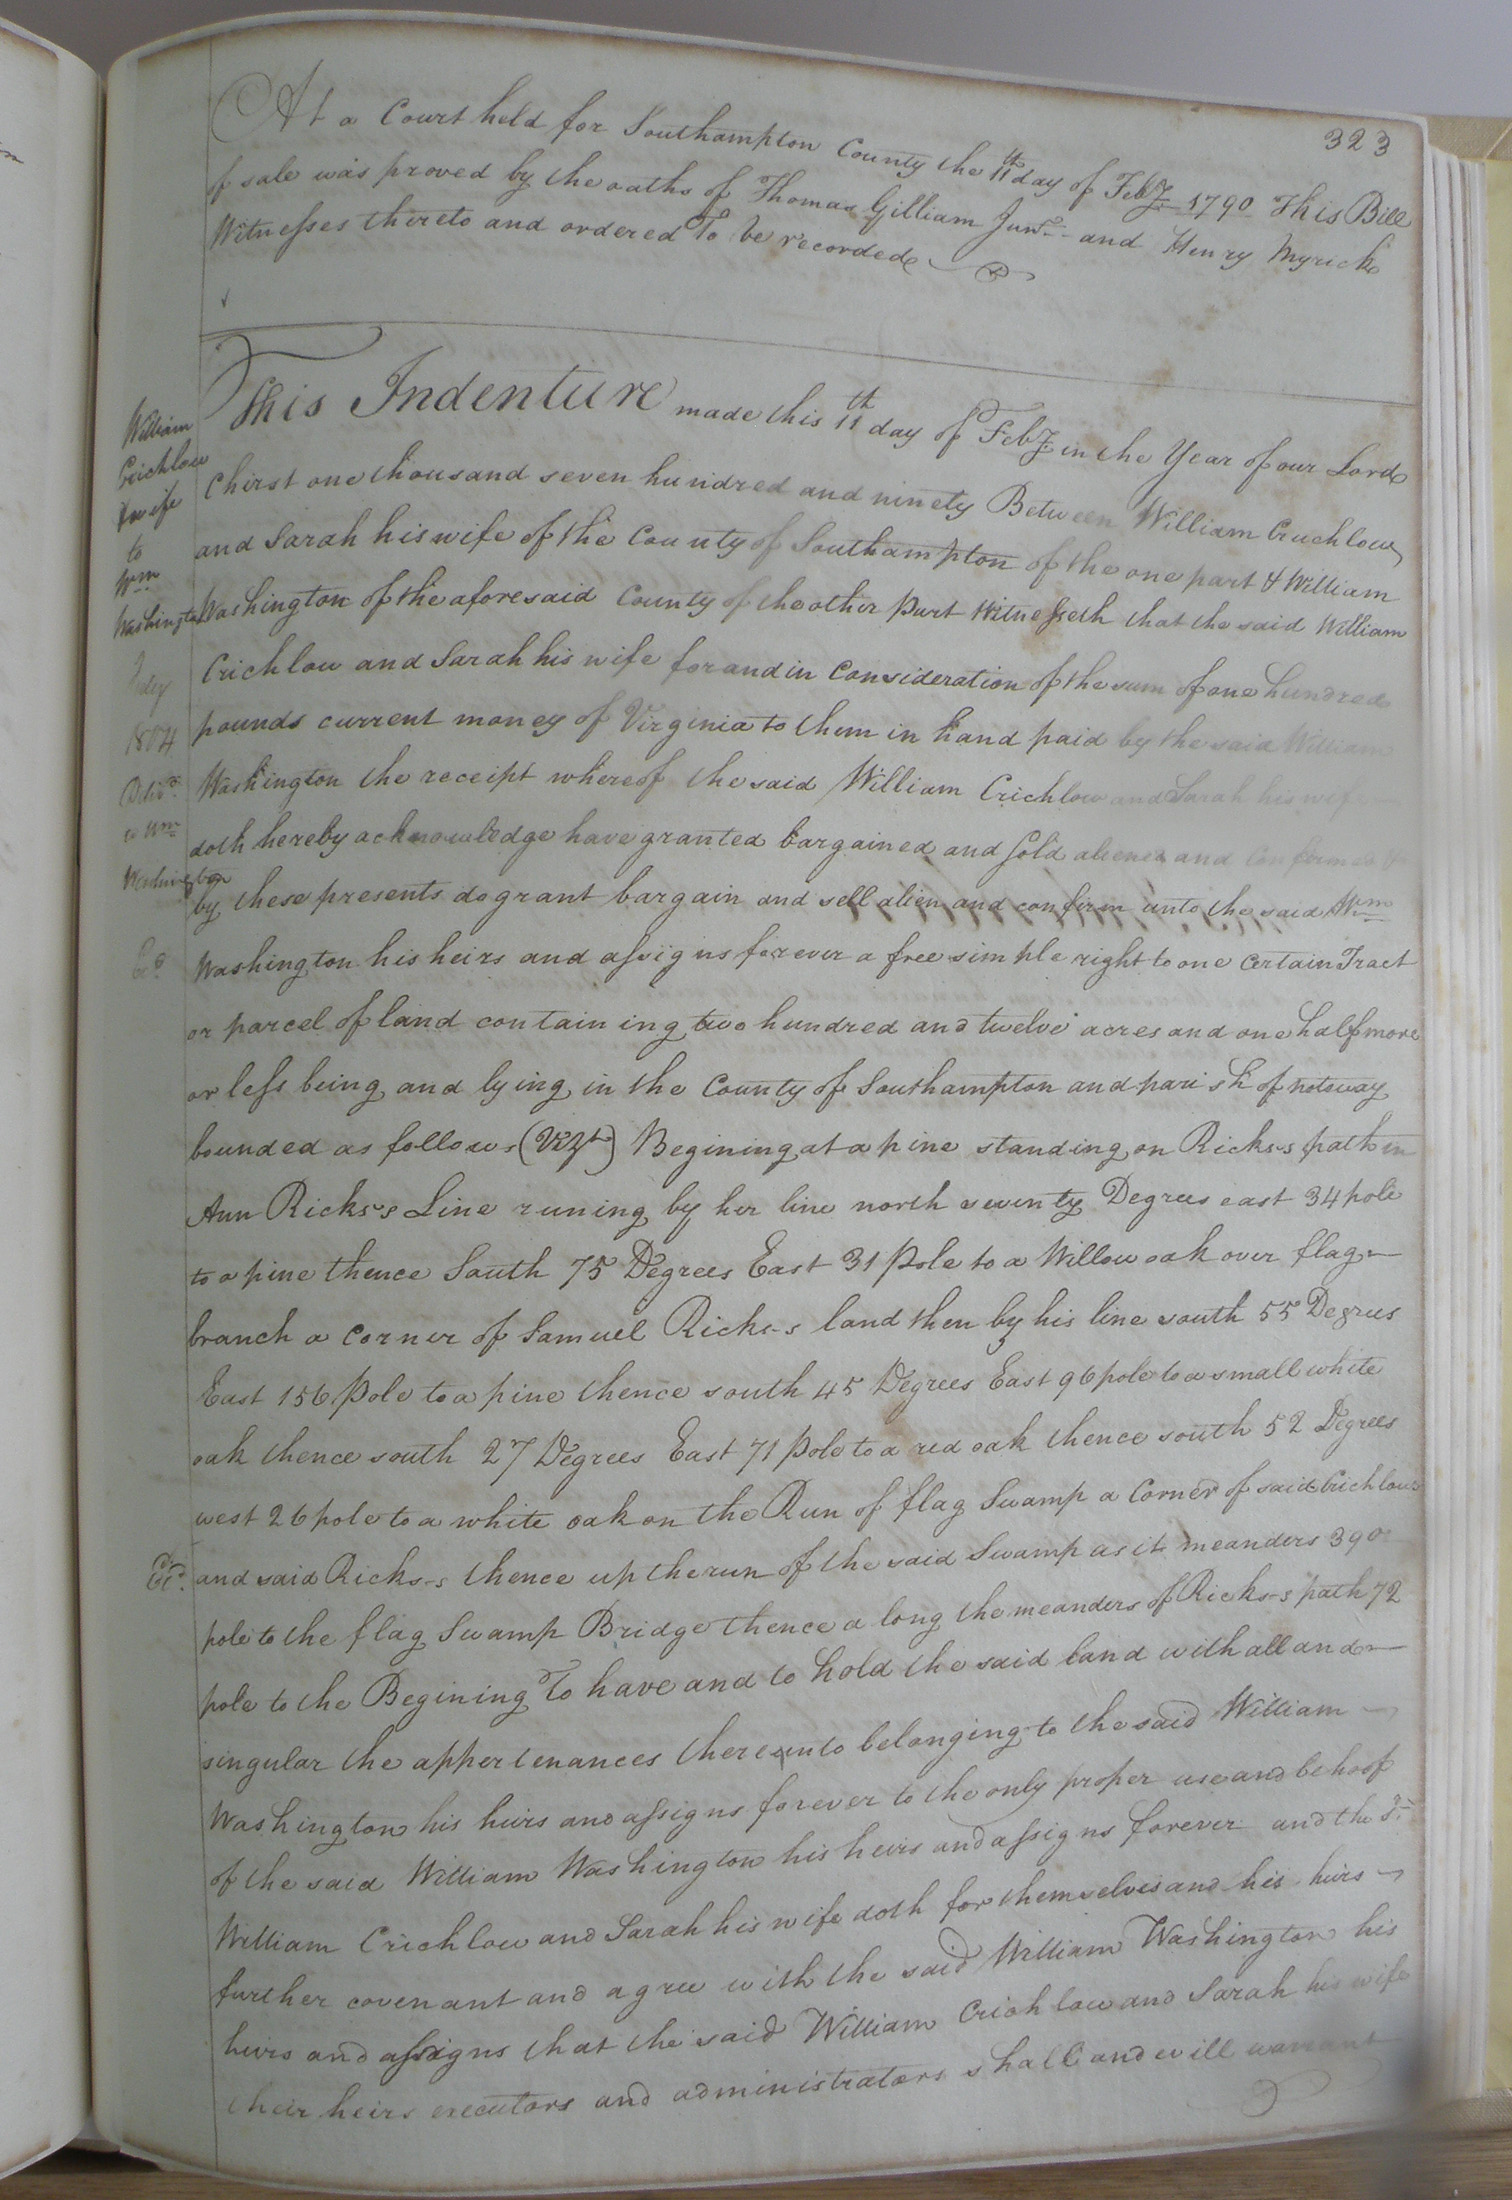 323
At a Court held for Southampton County the 11th day of Feby 1790 This Bill
of sale was proved by the oaths of Thomas Gilliam Junr and Henry Myrick
Witnesses thereto and ordered To be recorded
William
Crichlow
& wife
to
Wm
Washington
July
1804
Deld
to Wm
Washington
Exd
Exd.
This Indenture made this 11th day of Feby in the Year of our Lord
Chirst one thousand seven hundred and ninety Between William Cruchlow
and Sarah his wife of the County of Southampton of the one part & William
Washington of the aforesaid County of the other Part Witnesseth that the said William
Crichlow and Sarah his wife for and in Consideration of the sum of one hundred
pounds current money of Virginia to them in hand paid by the said William
Washington the receipt whereof the said William Crichlow and Sarah his wife
doth hereby acknowledge have granted bargained and sold aliened and confirmed
by these presents do grant bargain and sell alien and confirm unto the said Wm
Washington his heirs and assigns forever a free simple right to one certain Tract
or parcel of land containing two hundred and twelve acres and one half more
or less being and lying in the County of Southampton and parish of notoway
bounded as follows (Vizt) Begining at a pine standing on Ricks-s path in
Ann Ricks-s Line runing by her line north seventy Degrees east 34 pole
to a pine thence South 75 Degrees East 31 Pole to a Willow oak over flag
branch a corner of Samuel Ricks-s land then by his line south 55 Degrees
East 156 Pole to a pine thence south 45 Degrees East 96 pole to a small white
oak thence south 27 Degrees East 71 Pole to a red oak thence south 52 Degrees
west 26 pole to a white oak on the Run of flag Swamp a Corner of said Crichlow
and said Ricks-s thence up the run of the said Swamp as it meanders 390
pole to the flag Swamp Bridge thence a long the meanders of Ricks-s path 72
pole to the Begining To have and to hold the said land with all and
singular the appertenances thereunto belonging to the said William
Washington his heirs and assigns forever to the only proper use and behoof
of the said William Washington his heirs and assigns forever and the sd
William Crichlow and Sarah his wife doth for themselves and his heirs
further covenant and agree with the said William Washington his
heirs and assigns that the said William Crichlow and Sarah his wife
their heirs executors and administrators shall and will warrant